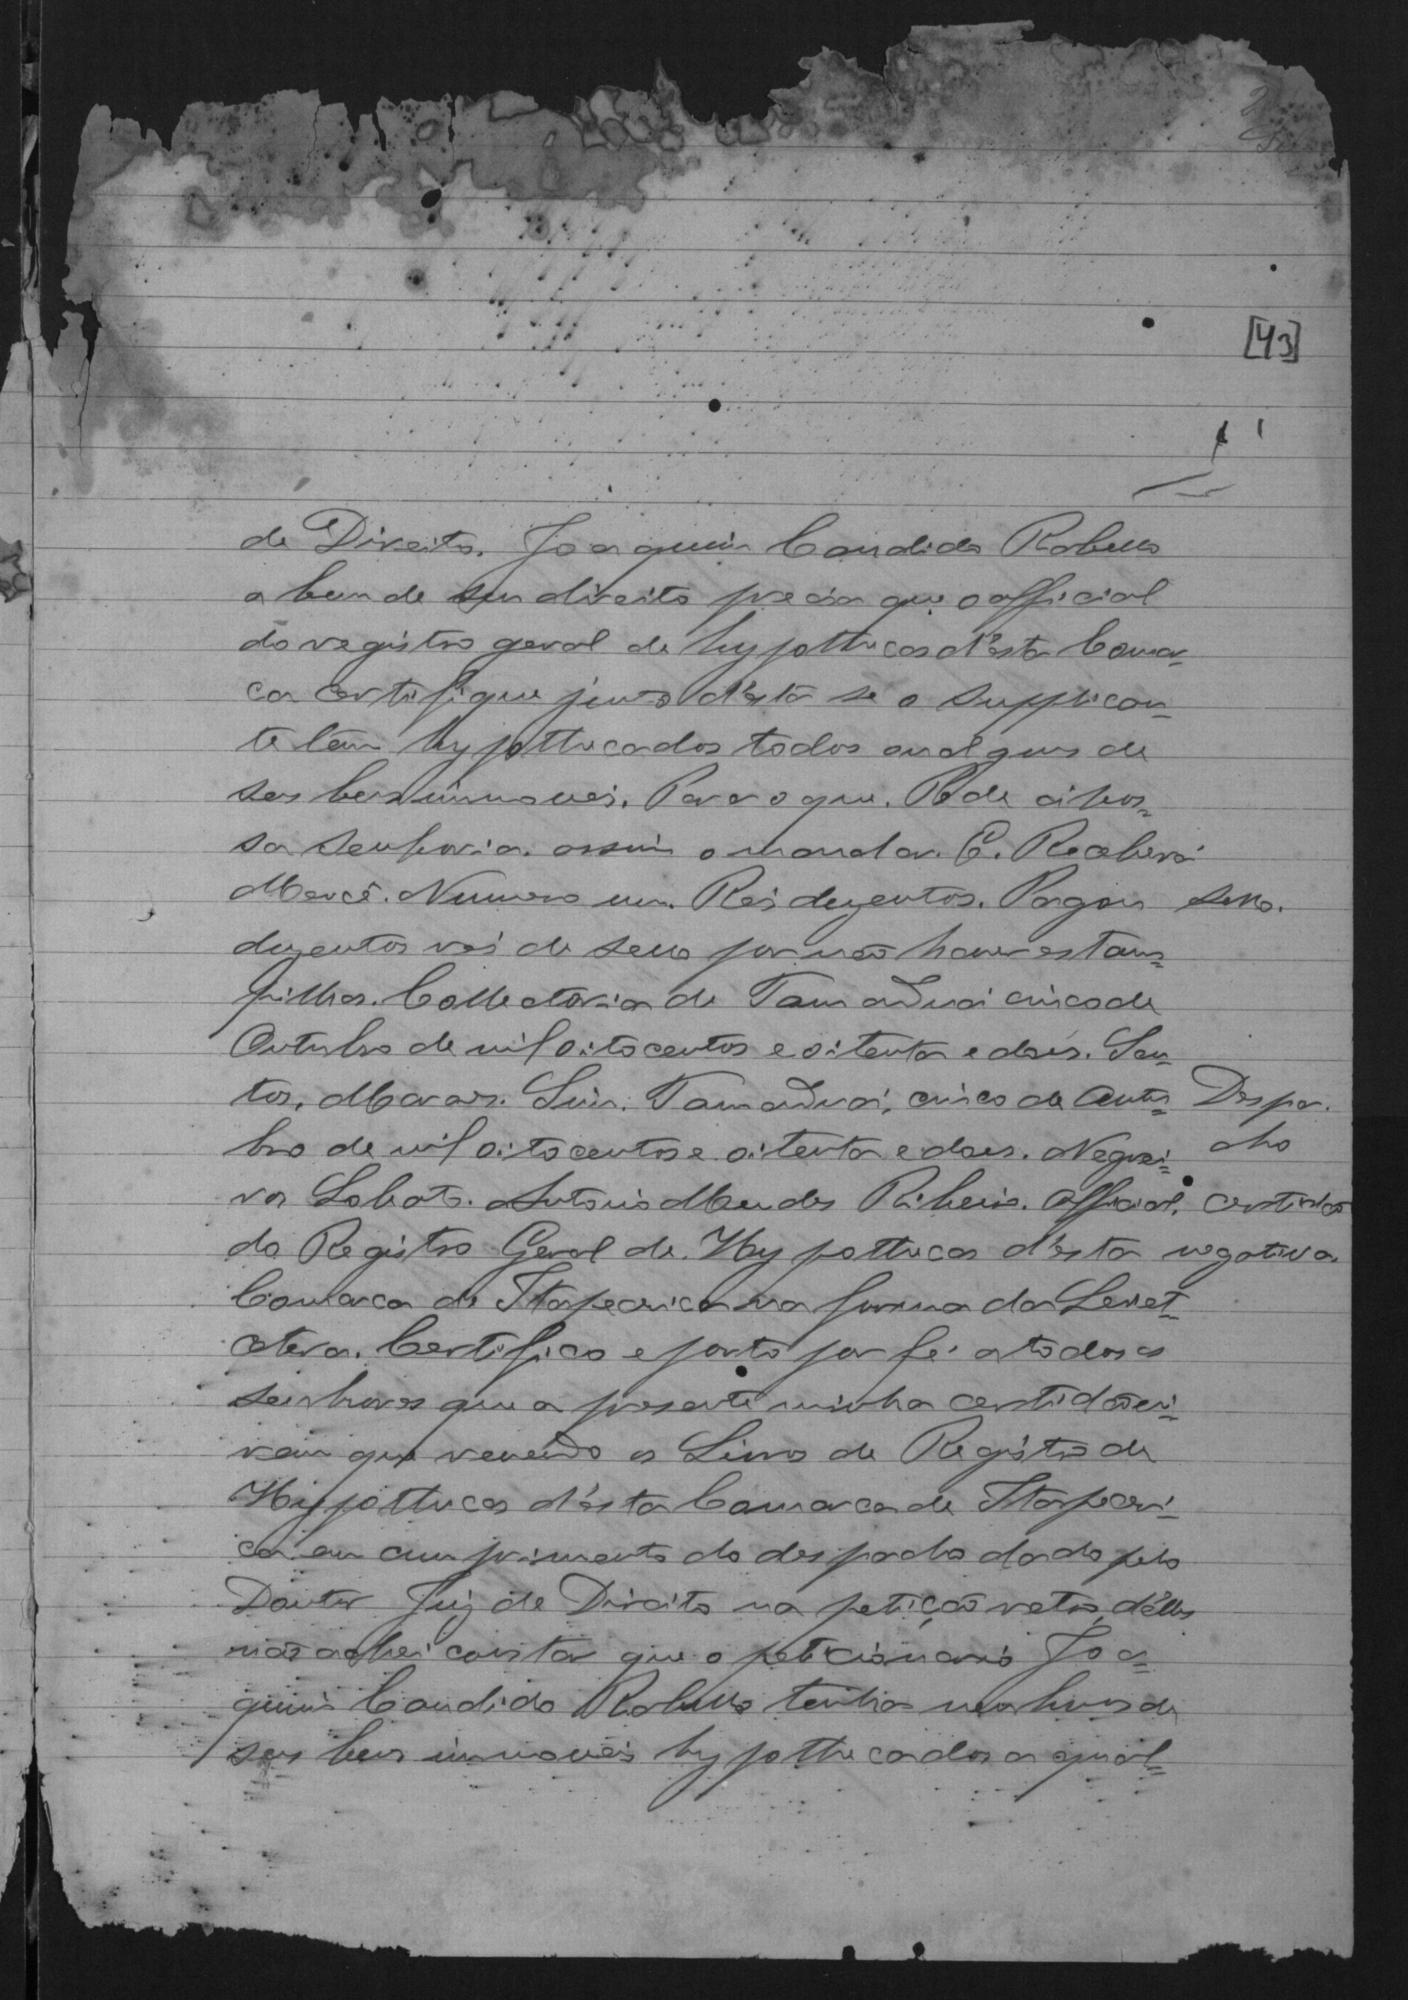 [43]
de Direito. Joaquim Candido Rabello
a bem de seu direito precisa que o official
do registro geral de hypothecas d'esta Comar=
ca certifique junto d'esta se o supplican=
te tem hypothecados todos ou alguns de
seus bens immoveis. Para o que. Pede a Vos=
sa Senhoria. assim o mandar. E. Receberá
Mercê. Numero um. Reis duzentos. Pagou
sello.
duzentos reis de sello por não haver estam=
pilhas. Collectoria de Tamanduá cinco de
Outubro de mil oitocentos e oitenta e dois. San=
tos. Moraes. Sim. Tamanduá, cinco de Outu=
Despa.
bro de mil oitocentos e oitenta e dois. Negrei=
cho
ros Lobato. Antonio Mendes Ribeiro. Official,
certidão
do Registro Geral de Hypothecas d'esta
negativa.
Comarca de Itapecerica na forma da Lei et=
cetera. Certifico e porto por fé a todos os
senhores que a presente minha certidão vi=
rem que revendo os Livros de Registro de
Hypothecas d'esta Comarca de Itapeceri=
ca em cumprimento do despacho dado pelo
Doutor Juiz de Direito na petição retro, d'elles
não achei constar que o peticionario Joa=
quim Candido Rabello tenha nenhum de
seus bens immoveis hypothecados a qual=